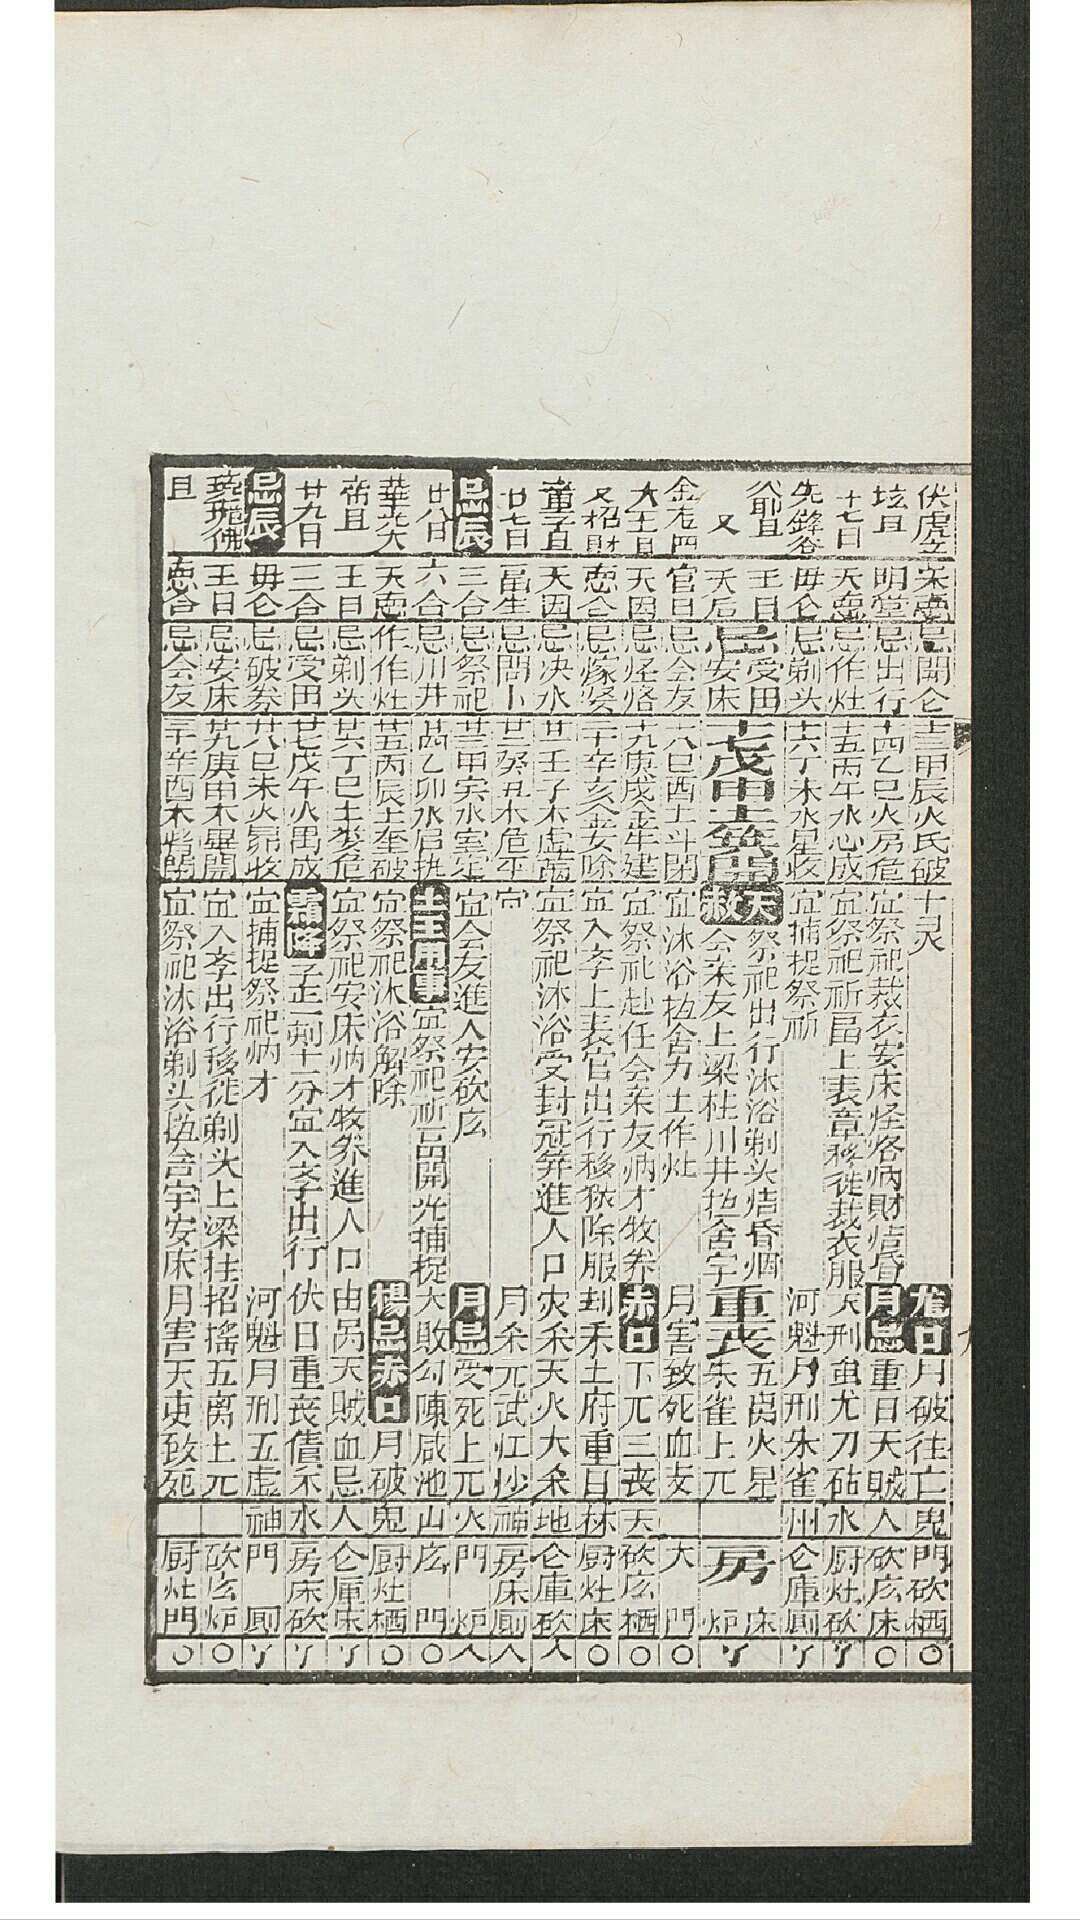 伏虎玄 忌開仓 十三甲辰火氏破 十灵 龙口 月破往亡鬼 門砍栖〇
坛旦 明堂 忌出行 十四乙巳火房危 宜祭祀裁衣安床经络纳財结昏 月忌 重日天賊人 砍広床〇
十七日 天恩 忌作灶 十五丙午水心成 宜祭祀祈畐上表章移徙裁衣服 天刑蚩尤刀砧水 厨灶砍丫
先鋒 毋仓 忌剃头 十六丁未水尾收 宜捕捉祭祈 河魁月刑朱雀州 仓庫厕丫
爺旦 王日 忌受田 十七戊申土箕開 天赦 祭祀出行沐浴剃头结昏姻 重丧 五离火星 房床
又 天后 忌安床 会亲友上梁柱川井 舍宇 朱雀上兀 炉丫
金龙四 官日 忌会友 十八己酉土斗閉 宜沐浴 舍力土作灶 月害致死血支 大門〇
大王旦 天因 忌经络 十九庚戌金牛建 宜祭祀赴任会亲友纳才牧养 赤口 下兀三丧天 砍広栖〇
又招財 忌嫁娶 二十辛亥金女除 宜入李上表官出行移徙除服 刦杀土府重日林 厨灶床〇
童子旦 天因 忌决水 廿一壬子木虚满 宜祭祀沐浴受封冠笄進人口 灾杀天火大杀地 仓庫砍人
廿七日 畐生 忌問卜 廿二癸丑木危平 宜 月杀元武 神 房床厕人
忌辰 三合 忌祭祀 廿三甲寅水室定 宜会友進人安砍広 月忌 受死上兀火 門炉人
廿八日 六合 忌川井 廿四乙卯水启执 土王用事 宜祭祀祈畐開光捕捉 大敗勾陳咸池山 広門〇
華光大 天恩 作作灶 廿五丙辰土奎破 宜祭祀沐浴解除 楊忌赤口 月破鬼 厨灶栖〇
帝旦 王日 忌剃头 廿六丁巳土娄危 宜祭祀安床纳才牧养進人口 由咼天賊血忌人 仓厙床丫
廿九日 三合 忌受田 廿七戊午火胃成 霜降 子正一刻十二分宜入李出行 伏日重丧債不水 房床砍丫
忌辰 毋仓 忌破券 廿八己未火昴收 宜捕捉祭祀纳才 河魁月刑五虚神 門厕丫
藥師佛 王日 忌安床 廿九庚申木畢開 宜入李出行移徙剃头上梁柱 招搖五离上兀 砍広炉〇
旦 忌会友 三十辛酉木觜閉 宜祭祀沐浴剃头 舍宇安床 月害天吏致死 厨灶門〇